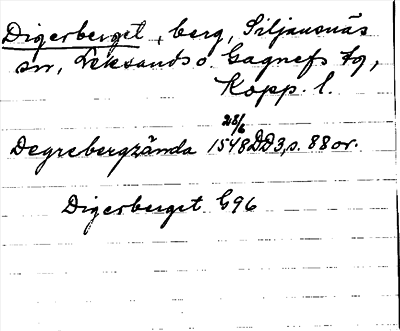 Digerberget, berg, Siljansnäs
sn, Leksands o. Gagnefs tg,
Kopp. l.
28/6
Degrebergzända 1548 DD3, s. 88 or.
Digerberget G96